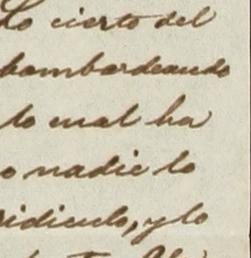 Lo cierto del
bombardeando
lo cual ha
o nadie lo
ridiculo, y lo